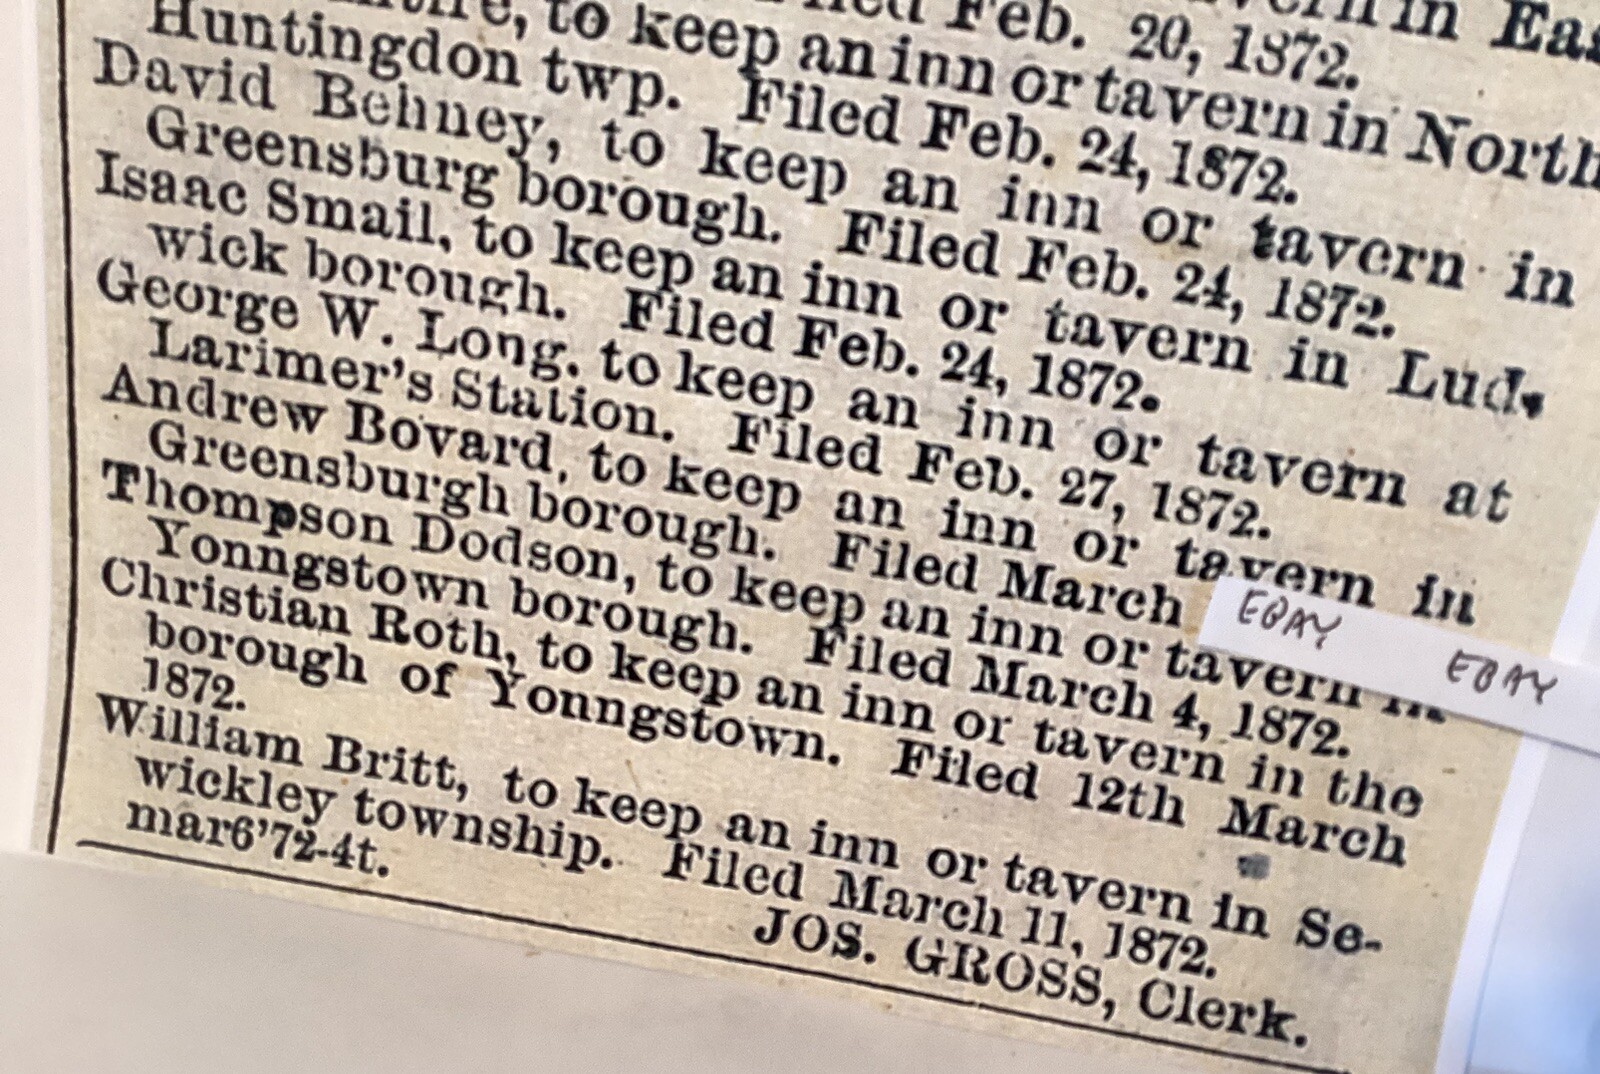 Feb. 20, 1872.
to keep an inn or tavern in North
Huntingdon twp. Filed Feb. 24, 1872.
David Behney, to keep an inn or tavern in
Greensburg borough. Filed Feb. 24, 1872.
Isaac Smail, to keep an inn or tavern in Lud-
wick borough. Filed Feb. 24, 1872.
George W. Long, to keep an inn or tavern at
Larimer's Station. Filed Feb. 27, 1872.
Andrew Bovard, to keep an inn or tavern in
Greensburgh borough. Filed March
Thompson Dodson, to keep an inn or tavern in
Yonngstown borough. Filed March 4, 1872.
Christian Roth, to keep an inn or tavern in the
borough of Yonngstown. Filed 12th March
1872.
William Britt, to keep an inn or tavern in Se-
wickley township. Filed March 11, 1872.
JOS. GROSS, Clerk.
mar6'72-4t.
EBAY EBAY